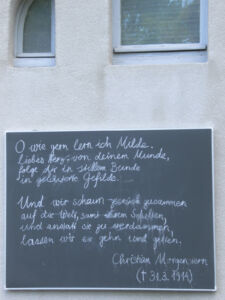 O wie gern lern ich Milde.
liebes Herz, von deinem Munde,
folge dir in stillem Bunde
in geklärtere Gefilde.
Und wir schaun zusammen
auf die Welt, samt ihrem Schelten,
und anstatt sie zu verdammen,
lassen wir sie gehn und gelten.
Christian Morgenstern
(† 31.3.1914)